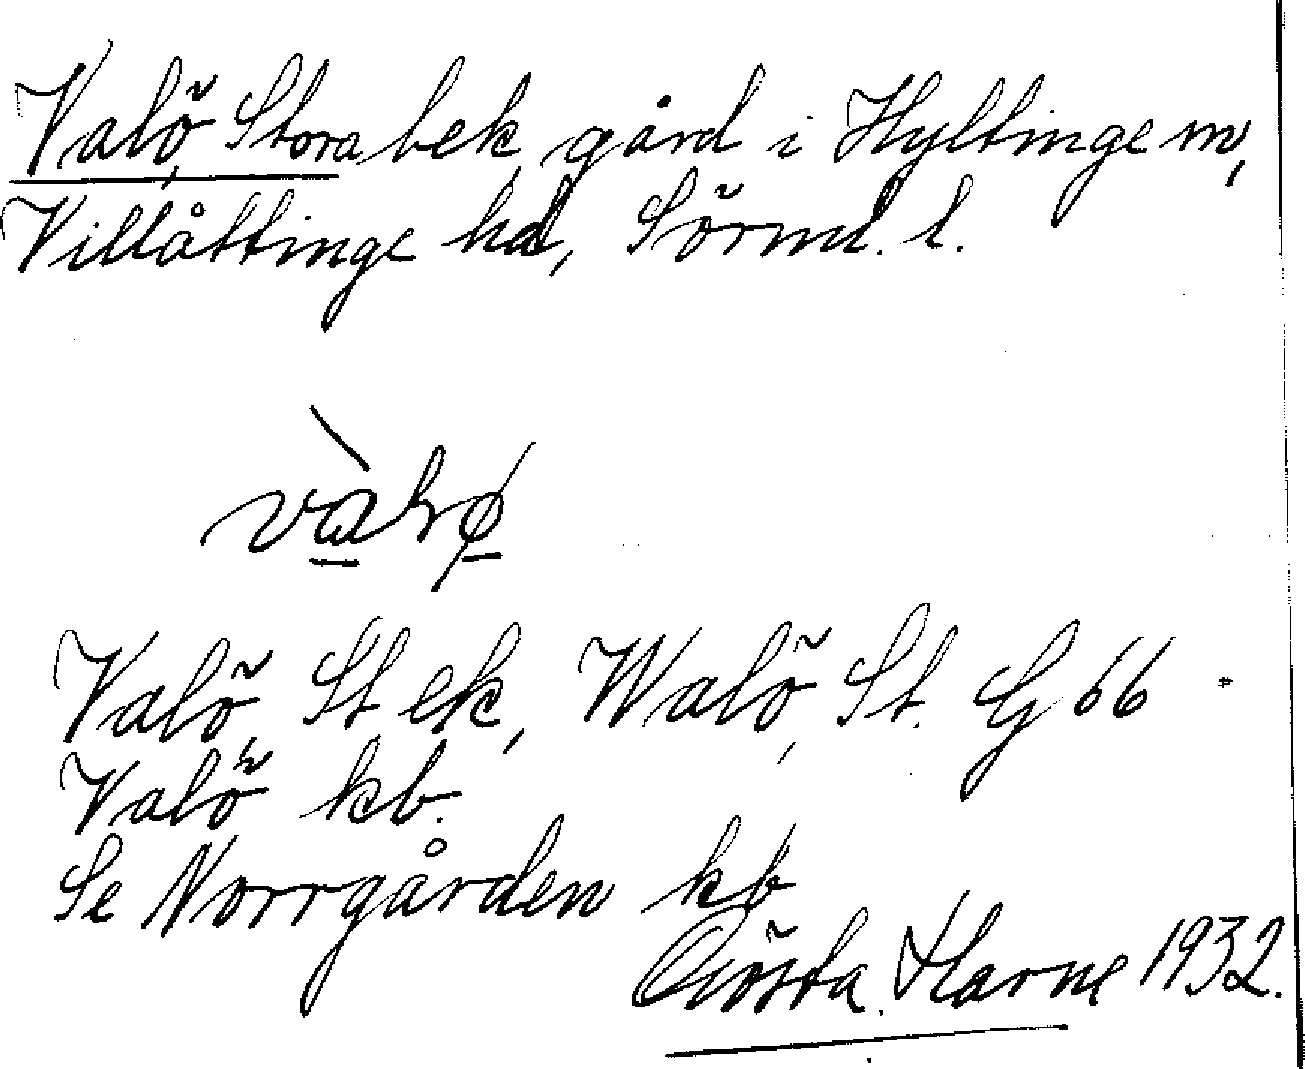 Valö, Stora bek, gård i Hyltinge sn,
Villåttinge hd, Södml. l.
vàlø
Valö, St ek, Walö, St. G 66
Valö kb.
Se Norrgården kb
Gösta Harne 1932.